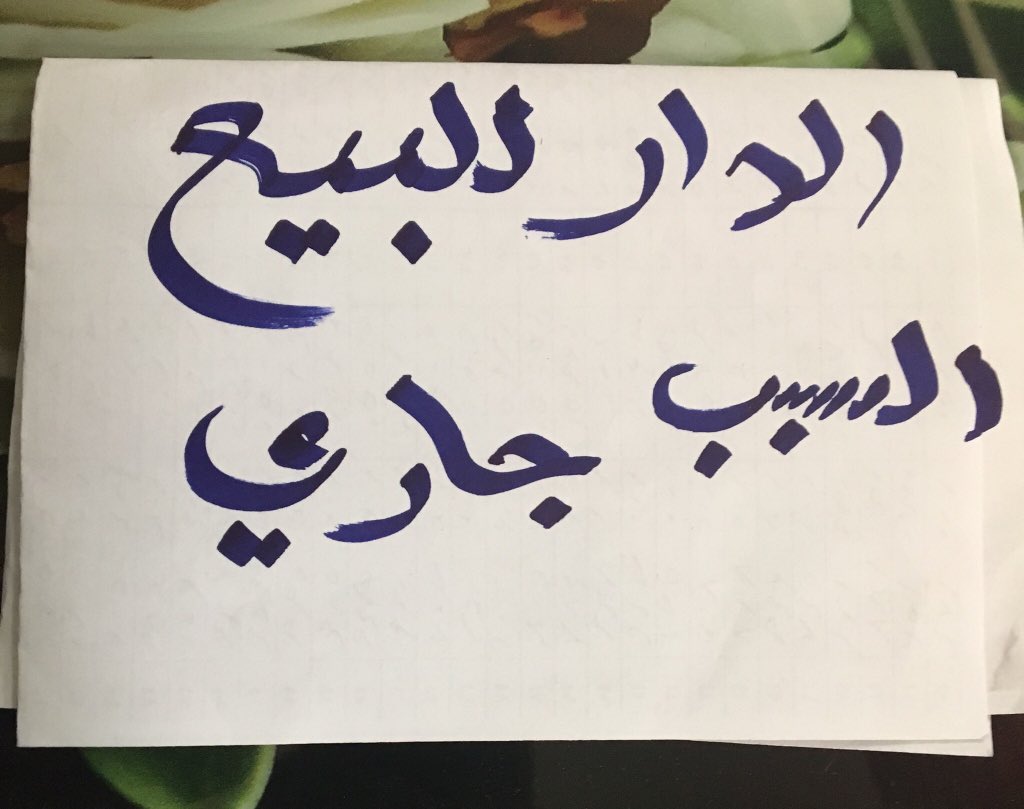 الدار للبيع
السبب جاري